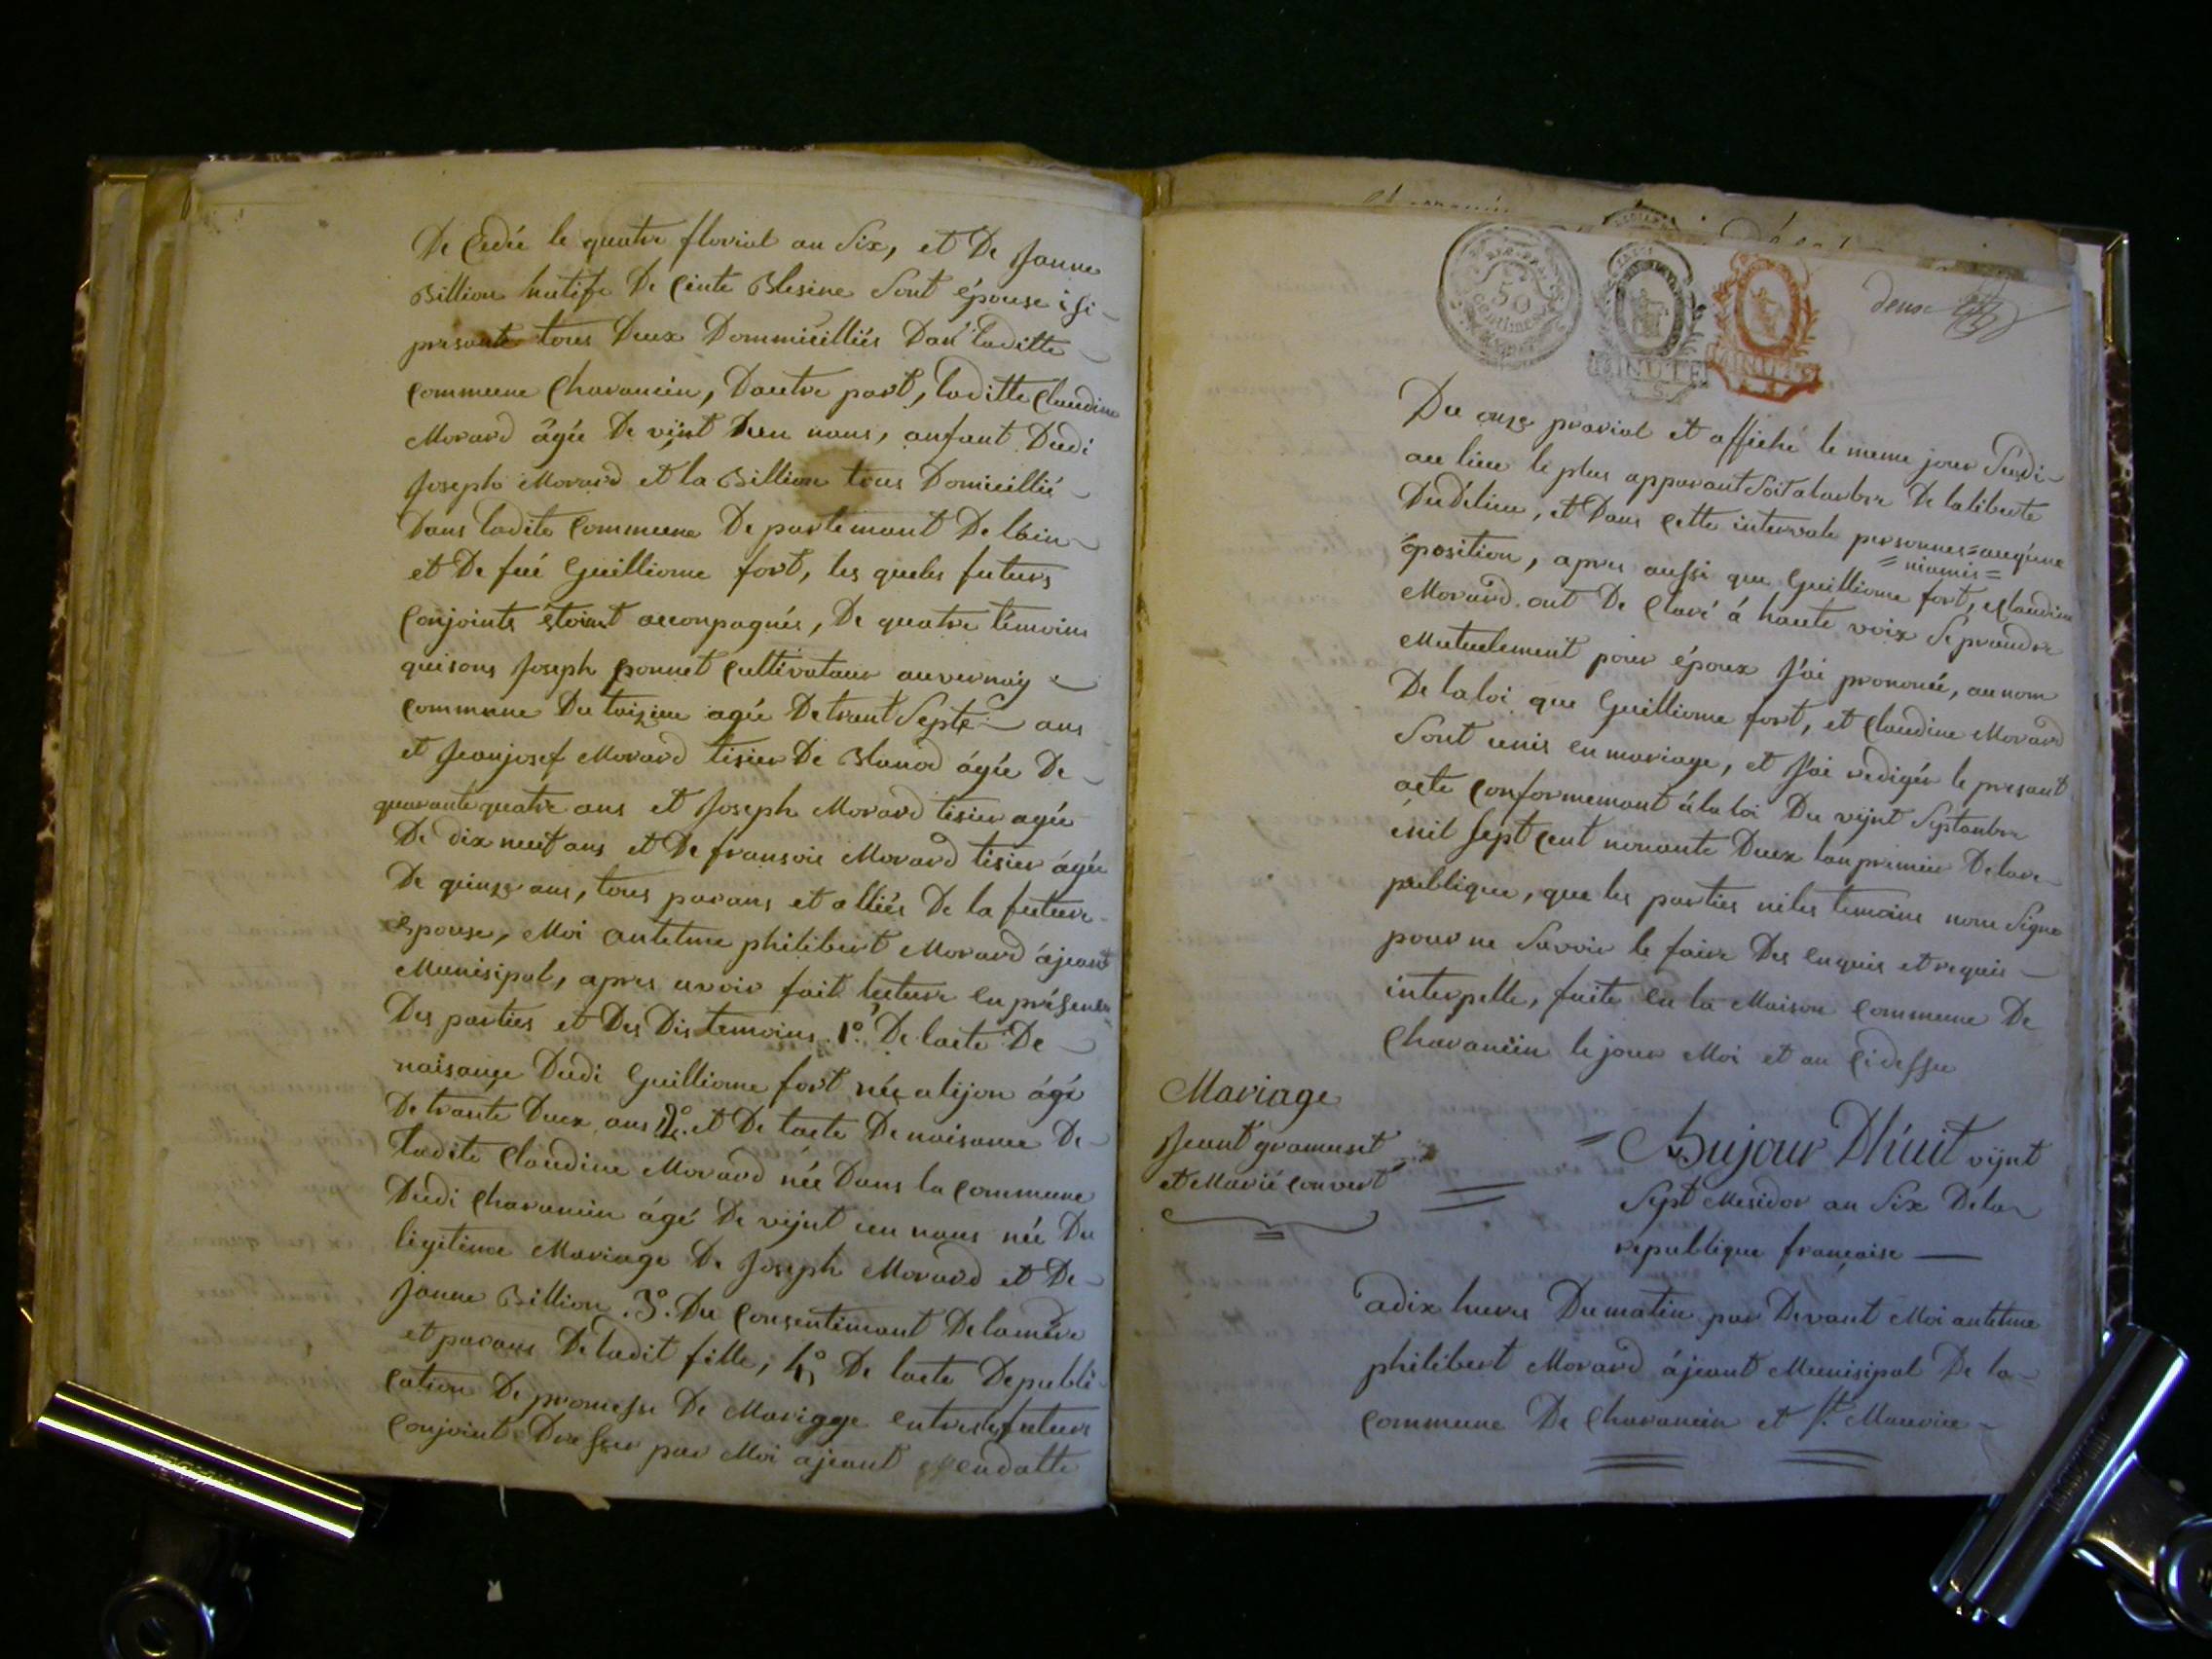 De Cedée le quatre florial an Six, et De Janne
Billion natife De Cinte Blesine Sont épouse i si -
presante tous Deux Dommicilliés Dan laditte -
commune Charancin, Dautre part, laditte Claudine
Morard âgée De vijnt Deun nans, anfant Dudi
Joseph Morard et la Billion tous Domicillié -
Dans ladite Commune De partemant De lain -
et De fué Guilliome fort, les queles futurs
Conjoints étoint aconpagnés, De quatre témoins
quisons Joseph ponnet Cultivataur auvernay
Commune Du taizieu agée Detrant Septe - ans
et Jeanjosef Morard tisier De Blanod ágée De -
quarante quatre ans et Joseph Morard tisier agée
De dix neuf ans et De fransois Morard tisier ágée
De quinze ans, tous parans et alliés De la future
Epouse, Moi antelme philibert Morard ájeant
Munisipal, apres avoir fait lecture en présence
Des parties et Des Dis temoins. 1º. De lacte De -
naisange Dudi Guilliome fort née alijon ágé
De trante Deux ans 2º. et De lacte De naisance De -
ladite Claudine Morard née Dans la Commune
Dudi Charancin ágé De vijnt un nans née Du
ligitime Mariage De Joseph Morard et De -
Janne Billion. 3º. Du Consentimant De la mére
et parans De ladit fille, 4º De lacte De publi
Cation De promesse De Mariage entre les futurs
Conjoint Dressee par Moi ajeant endatte
50
Centimes
MINUTE
MINUTE
deux
Du onze prarial et affiché le meme jour Sudi -
au lieu le plus apparant Soit a larbre De laliberte
Dudélieu, et Dans Cette intervale personnes = auqune
= niamis =
oposition, apres aussi que Guilliome fort, et Claudine
Morard ont De Claré á haute voix Se prandre
Mutuelement pour époux J'ai prononcé, aunom
De la loi que Guilliome fort, et Claudine Morard
Sont unis en mariage, et J'ai redigér le presant
acte Conformemant á la loi Du vijnt Septanbre
mil Sept Cent nonante Deux lan premier De lare -
publique, que les parties niles temoins nom Signe
pour ne Savoir le faire Des enquis et requis -
interpelle, faite en la Maison Commune De
Charancin le jour Moi et an Cidessu
Mariage
Jeant gramusit
et Marié Convert
= Aujour Dhuit vijnt
Sept Mesidor an Six De la
republique française —
adix hures Dumatin par Devant Moi antelme
philibert Morard ájeant Munisipal De la -
Commune De Charancin et St. Maurice -